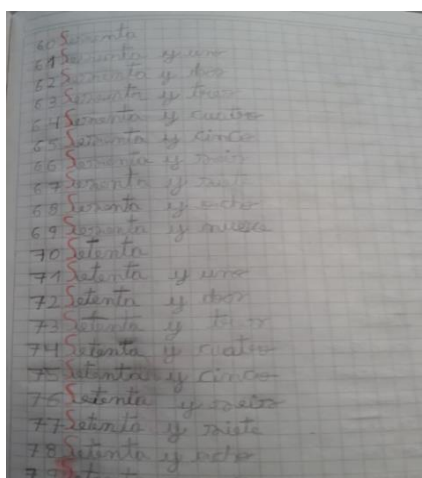 60 Sesenta
61 Sesenta y uno
62 Sesenta y dos
63 Sesenta y tres
64 Sesenta y cuatro
65 Sesenta y cinco
66 Sesenta y seis
67 Sesenta y siete
68 Sesenta y ocho
69 Sesenta y nueve
70 Setenta
71 Setenta y uno
72 Setenta y dos
73 Setenta y tres
74 Setenta y cuatro
75 Setenta y cinco
76 Setenta y seis
77 Setenta y siete
78 Setenta y ocho